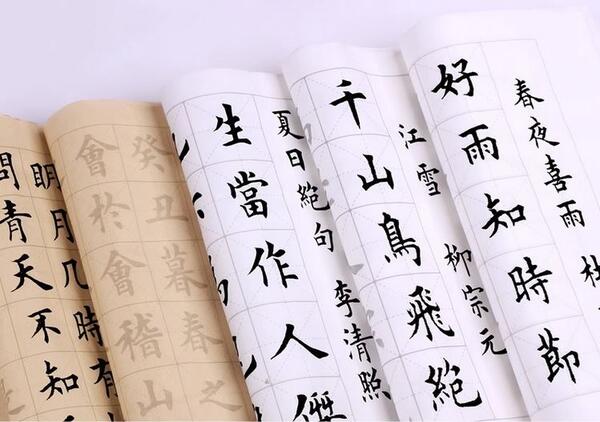 春夜喜雨
好雨知時節
江雪 柳宗元
千山鳥飛絶
夏日絶句 李清照
生當作人傑
癸丑暮春之
會於會稽山
明月几時有
問青天不知